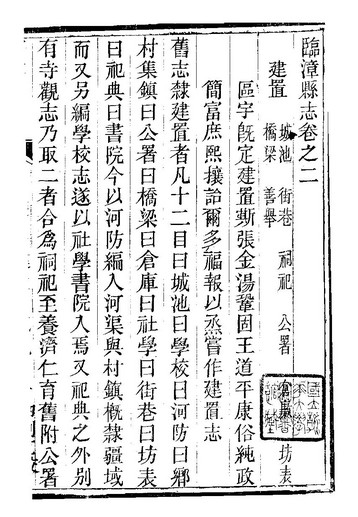 臨漳縣志卷之二
建置 城池 街巷 祠祀 公署 倉 坊表
橋梁 善舉
區宇旣定建置斯張金湯鞏固王道平康俗純政
簡富庶熙攘詒爾多福報以烝嘗作建置志
舊志隸建置者凡十二目曰城池曰學校曰河防曰鄉
村集鎮曰公署曰橋梁曰倉庫曰社學曰街巷曰坊表
曰祀典曰書院今以河防編入河渠與村鎮槪隸疆域
而又另編學校志遂以社學書院入焉又祀典之外別
有寺觀志乃取二者合爲祠祀至養濟仁育舊附公署